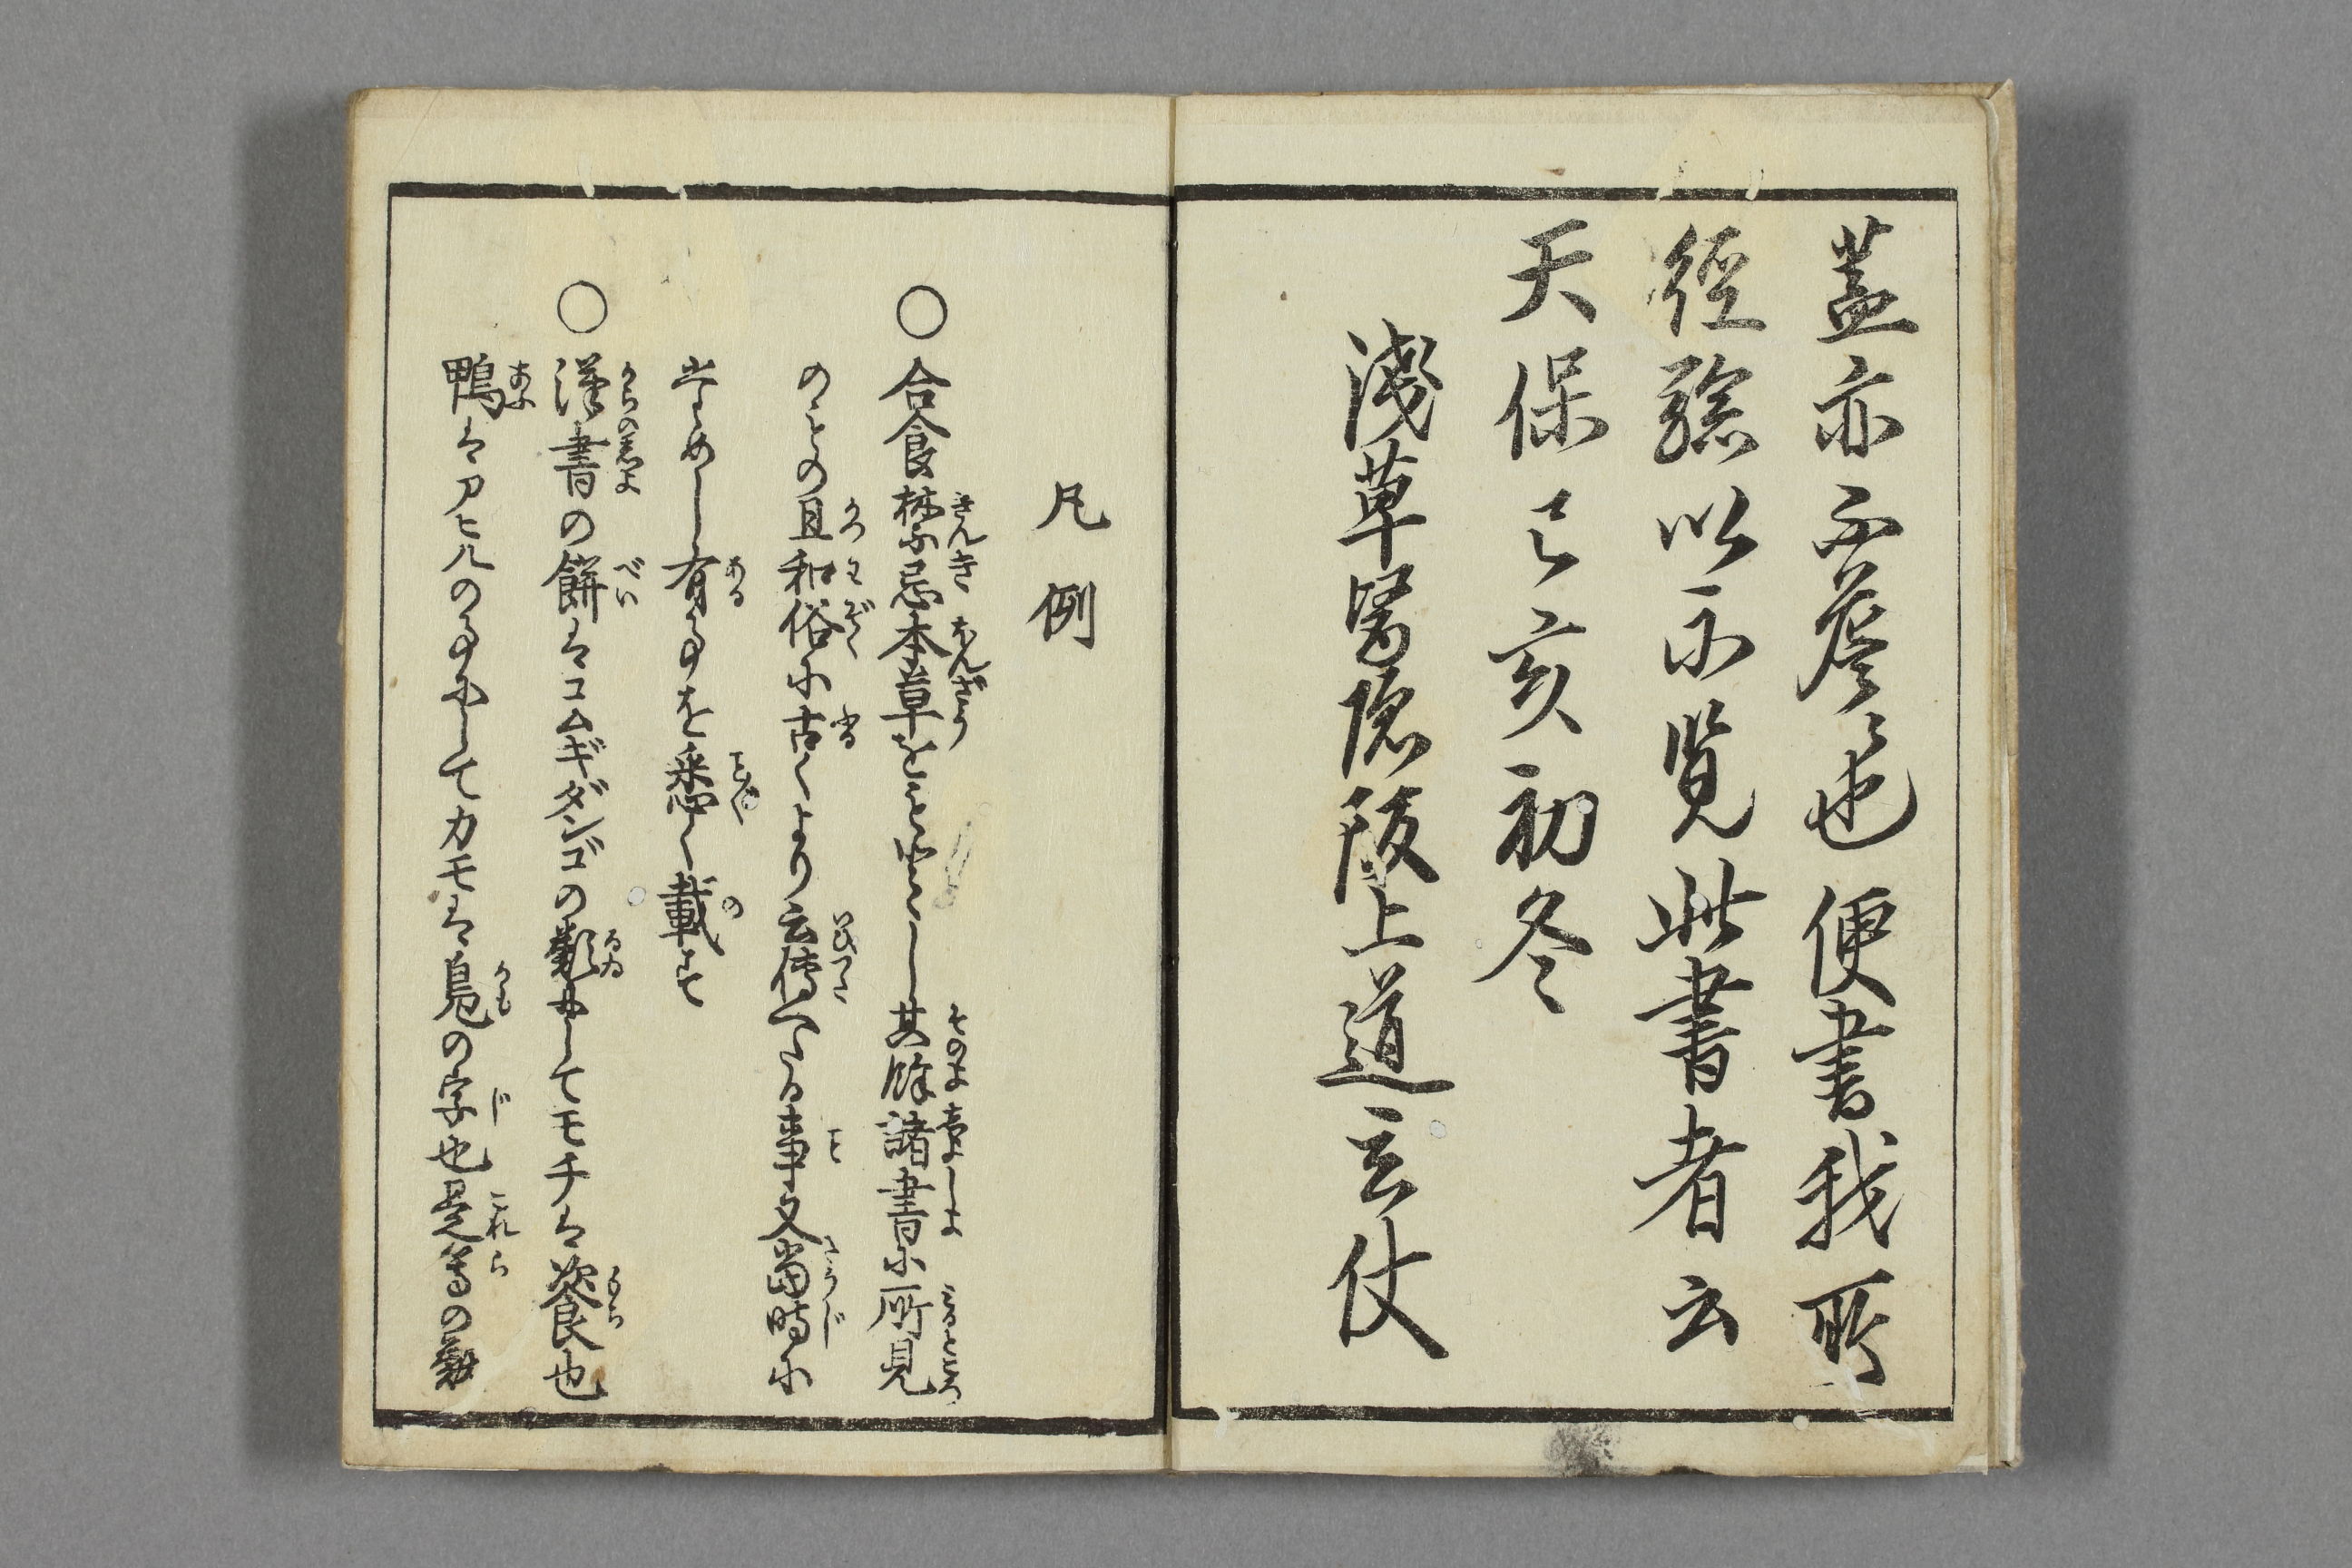 蓋亦不羞也便書我所
經驗以示覧此書者云
天保己亥初冬
淺草醫隱阪上道玄仗
凡例
○合食禁忌本草をもとゝし其餘諸書に所見
のもの且和俗に古くより云傳へたる事又當時に
有を悉く載す
○漢書の餅はコムギダンゴの類にしてモチは餈也
鴨はアヒルの事にしてカモは鳬の字也是等の類